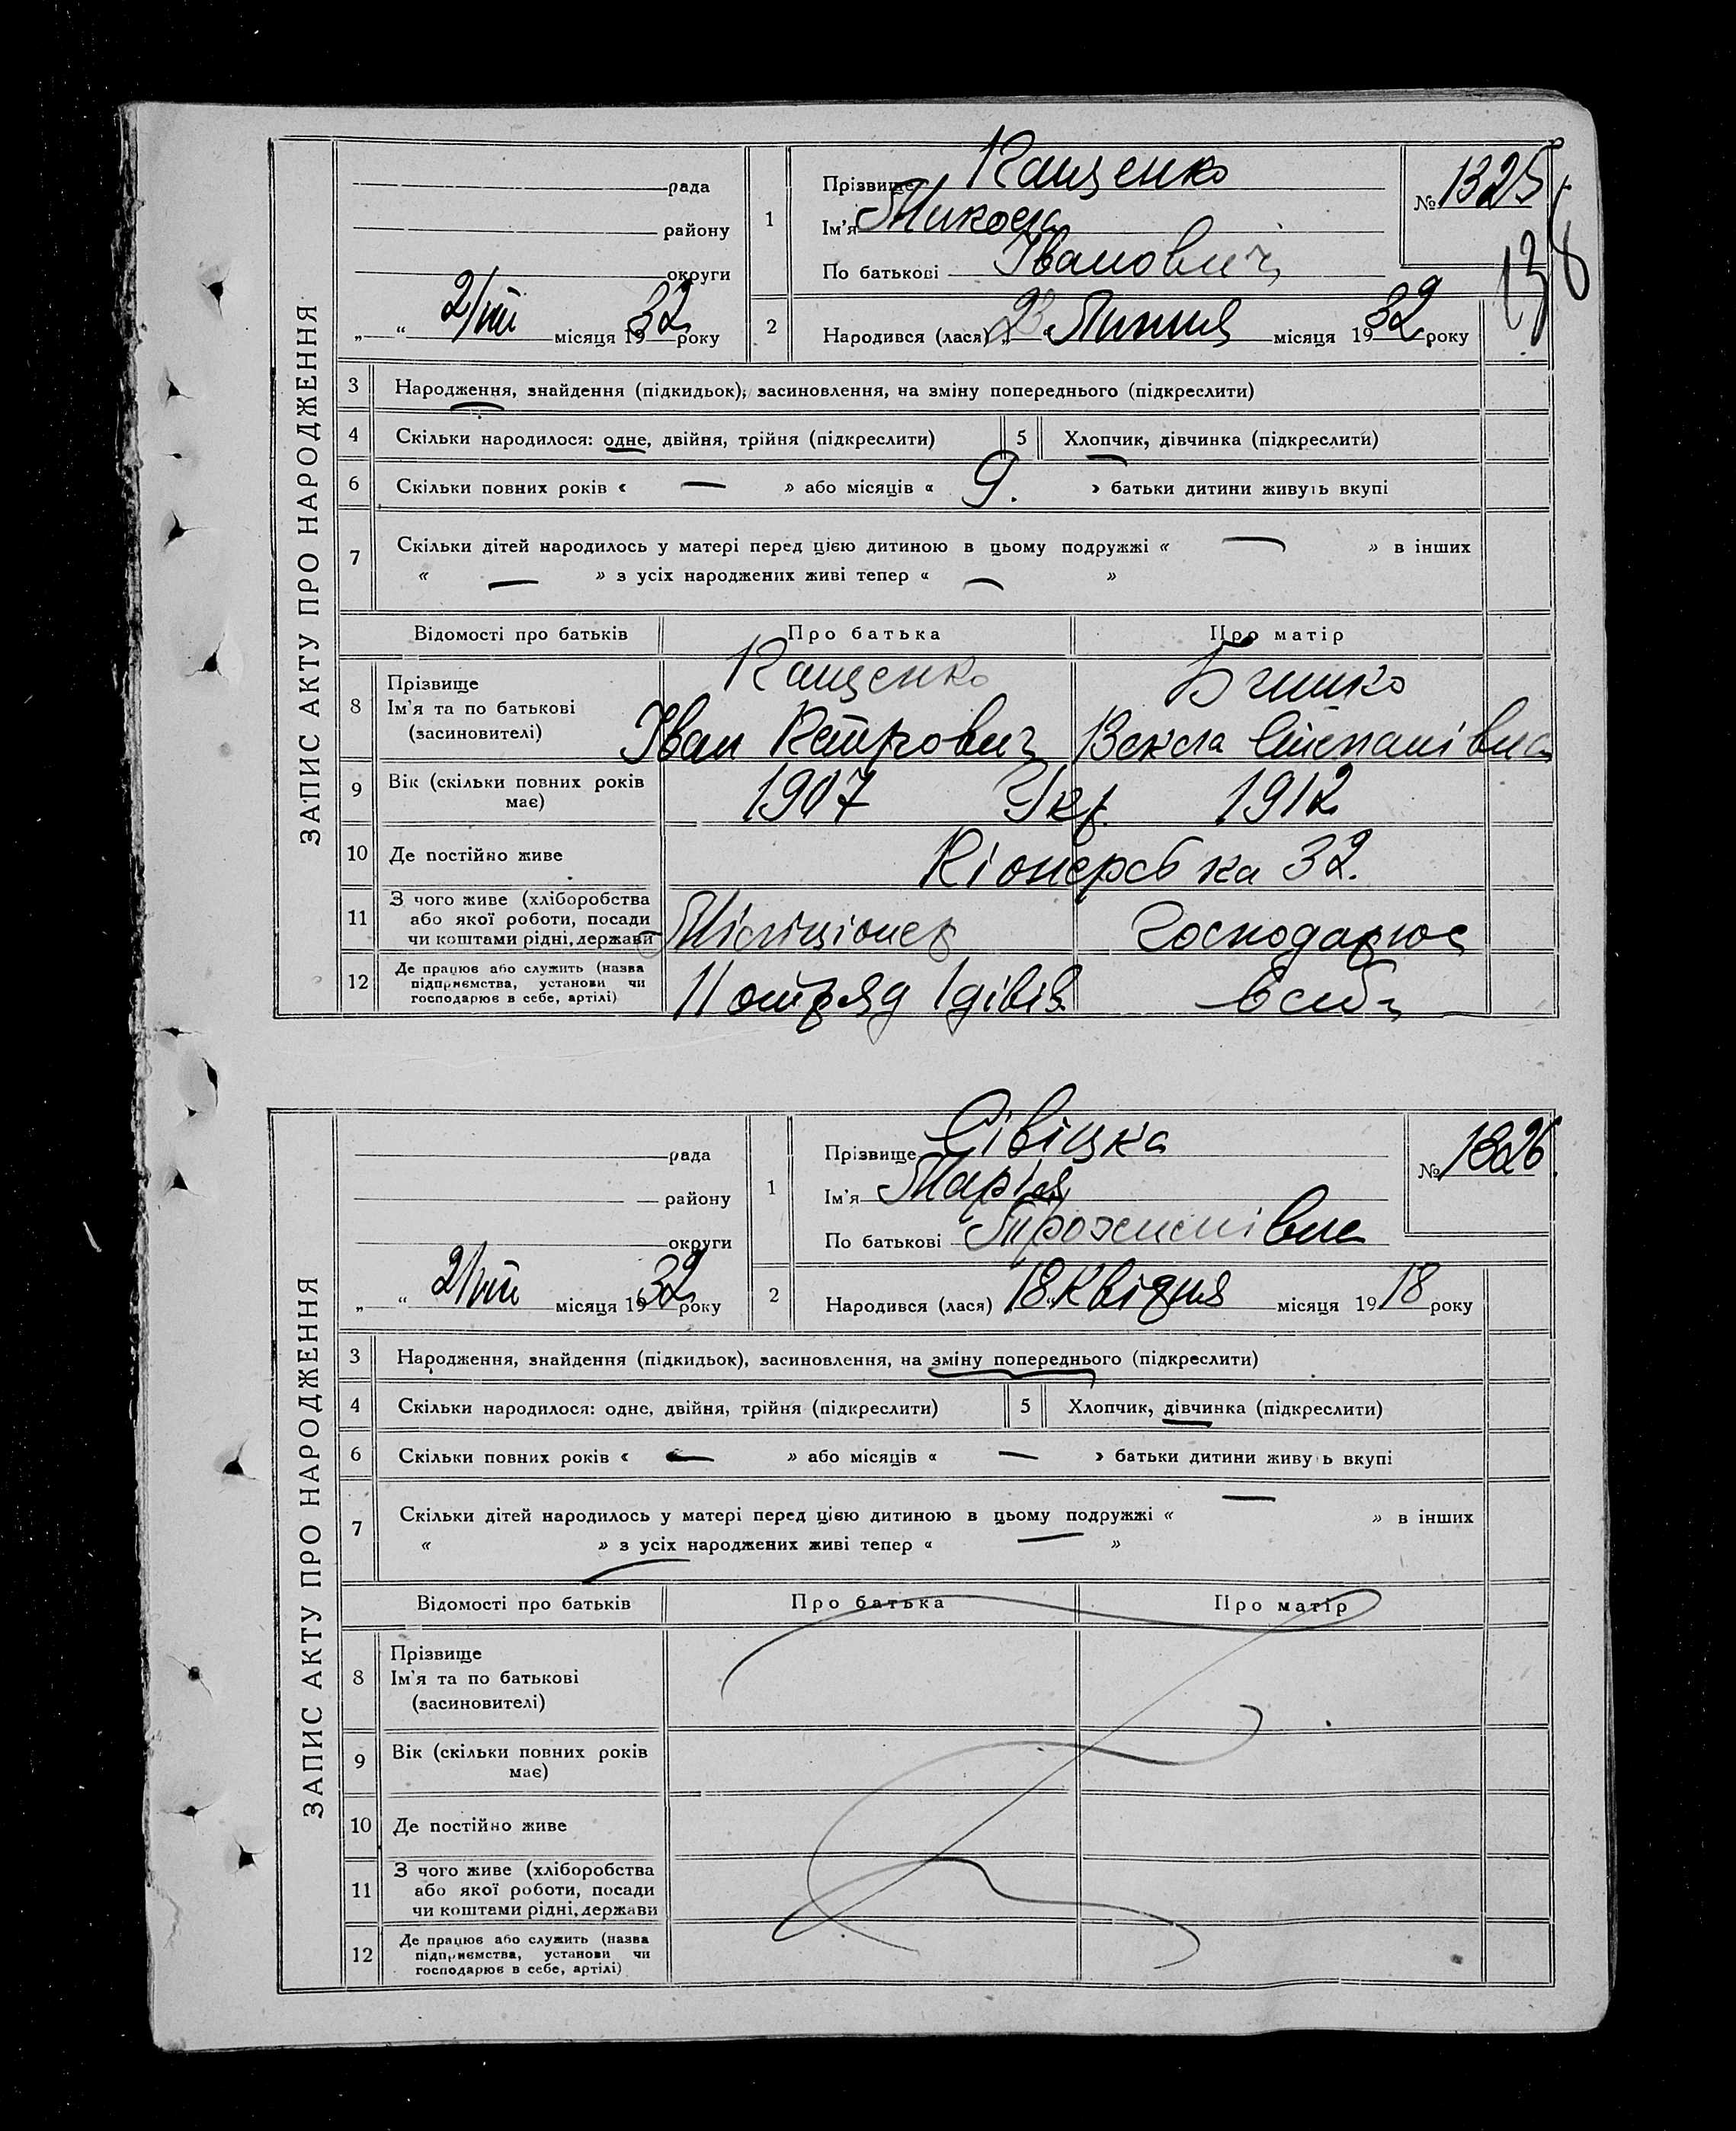 ЗАПИС АКТУ ПРО НАРОДЖЕННЯ
рада
району
округи
2/VIII місяця 1932 року
1
Прізвище Кащенко
Ім'я Микола
По батькові Іванович
№ 1325
138
2
Народився (лася) 23 Липня місяця 1932 року
3 Народження, знайдення (підкидьок), засиновлення, на зміну попереднього (підкреслити)
4 Скільки народилося: одне, двійня, трійня (підкреслити) 5 Хлопчик, дівчинка (підкреслити)
6 Скільки повних років « — » або місяців « 9. » батьки дитини живуть вкупі
7 Скільки дітей народилось у матері перед цією дитиною в цьому подружжі « — » в інших
« — » з усіх народжених живі тепер « — »
Відомості про батьків Про батька Про матір
8 Прізвище
Ім'я та по батькові
(засиновителі)
Кащенко
Іван Петрович
Векла Степанівна
9 Вік (скільки повних років
має)
1907 Укр. 1912
10 Де постійно живе Піонерська 32.
11 З чого живе (хліборобства
або якої роботи, посади
чи коштами рідні, держави
Міліціонер Господарює
12 Де працює або служить (назва
підприємства, установи чи
господарює в себе, артілі)
отряд
ЗАПИС АКТУ ПРО НАРОДЖЕННЯ
рада
району
округи
2/VIII місяця 1932 року
1
Прізвище Сівіцка
Ім'я Марія
По батькові
№ 1326.
2
Народився (лася) 18 Квітня місяця 1918 року
3 Народження, знайдення (підкидьок), засиновлення, на зміну попереднього (підкреслити)
4 Скільки народилося: одне, двійня, трійня (підкреслити) 5 Хлопчик, дівчинка (підкреслити)
6 Скільки повних років « — » або місяців « — » батьки дитини живуть вкупі
7 Скільки дітей народилось у матері перед цією дитиною в цьому подружжі « — » в інших
« — » з усіх народжених живі тепер « — »
Відомості про батьків Про батька Про матір
8 Прізвище
Ім'я та по батькові
(засиновителі)
9 Вік (скільки повних років
має)
10 Де постійно живе
11 З чого живе (хліборобства
або якої роботи, посади
чи коштами рідні, держави
12 Де працює або служить (назва
підприємства, установи чи
господарює в себе, артілі)